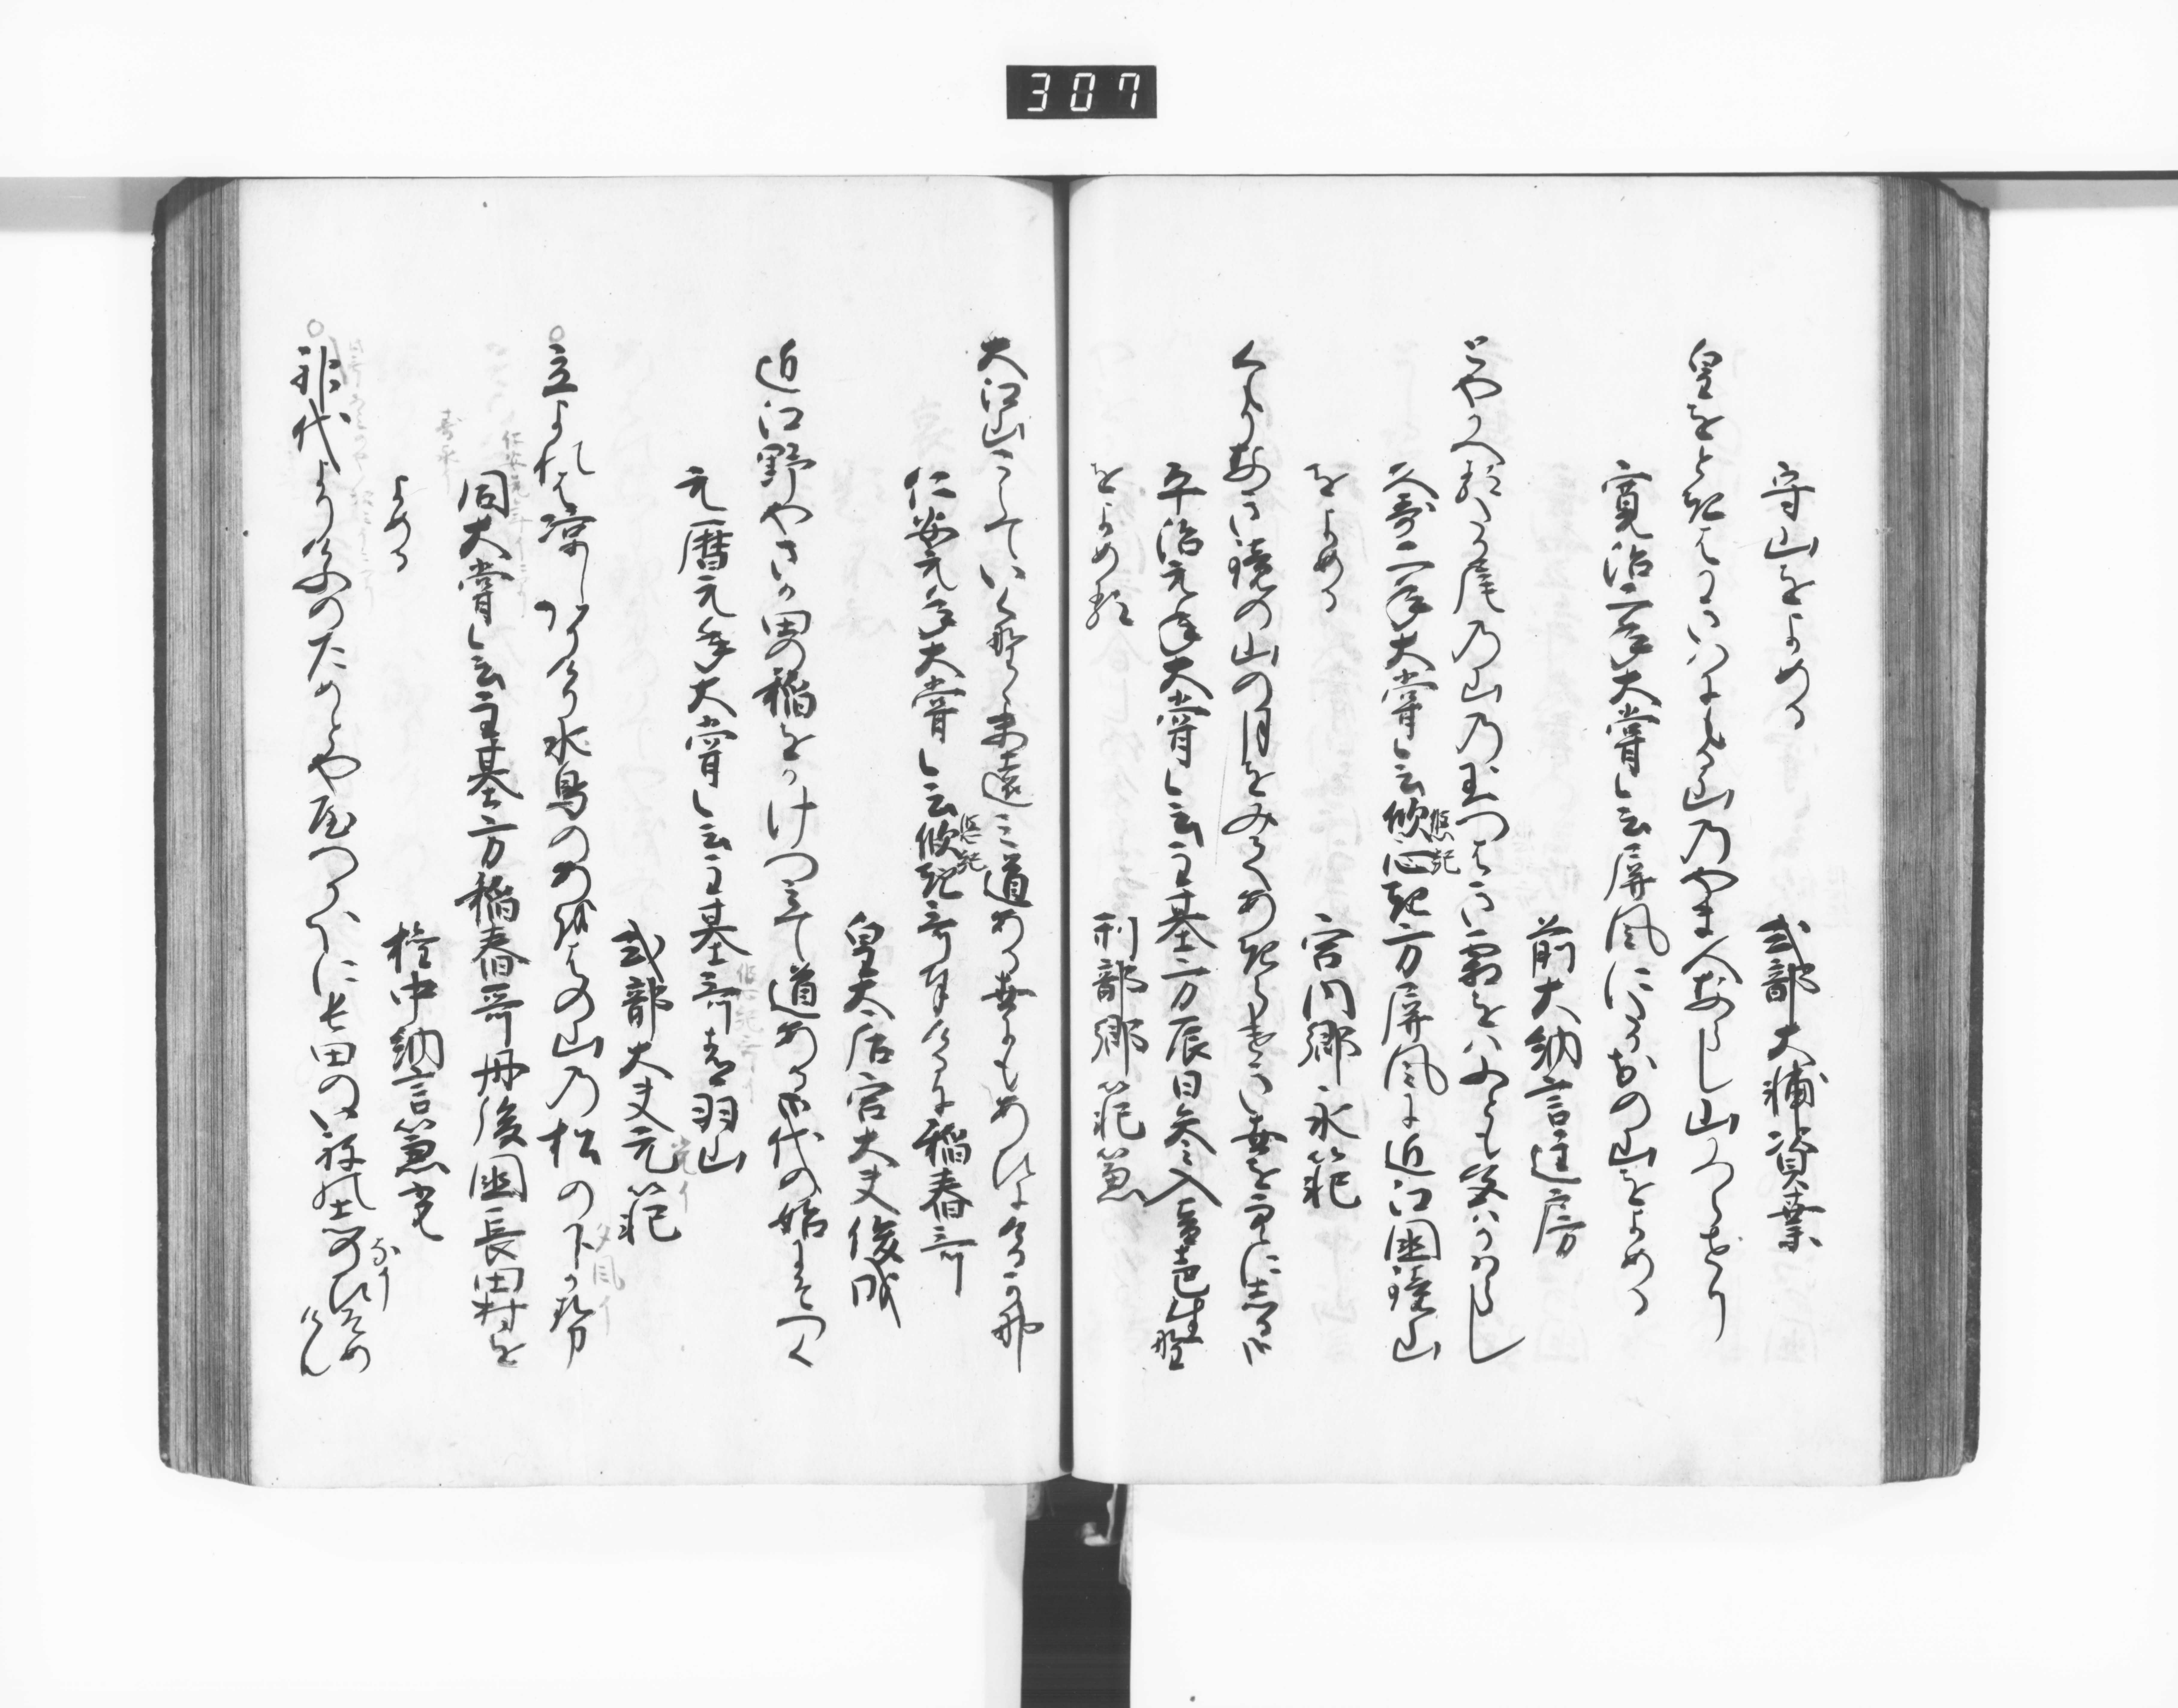 守山をよめる
式部大輔資業
皇をときはかきはにもる山乃やま人ならし山かつらせり
寛治二年大嘗会屏風にたかおの山をよめる
前大納言匡房
とやかへるたかの尾乃山乃玉つはき霜をはふとも色はかはらし
久寿二年大嘗会悠紀方屏風に近江国鏡山
をよめる
宮内卿永範
くもりなき鏡の山の月をみてあきらけき世を空に志る哉
平治元年大嘗会主基方辰日参入音声生野
をよめる
刑部卿範兼
大江山こえていく野の末遠み道ある世にもあひにけるかな
仁安元年大嘗会悠紀哥奉けるに稲舂哥
皇太后宮大夫俊成
近江野やさか田の稲をかけつみて道ある御代の始にそつく
元暦元年大嘗会主基哥青羽山
式部大夫元範
立よれは凉しかりけり水鳥のあをはの山乃松の下かせ
同大嘗会主基方稲舂哥丹後国長田村を
よめる
権中納言兼光
神代よりけふのためとや屋つかほに長田のいねの志なひそめけん